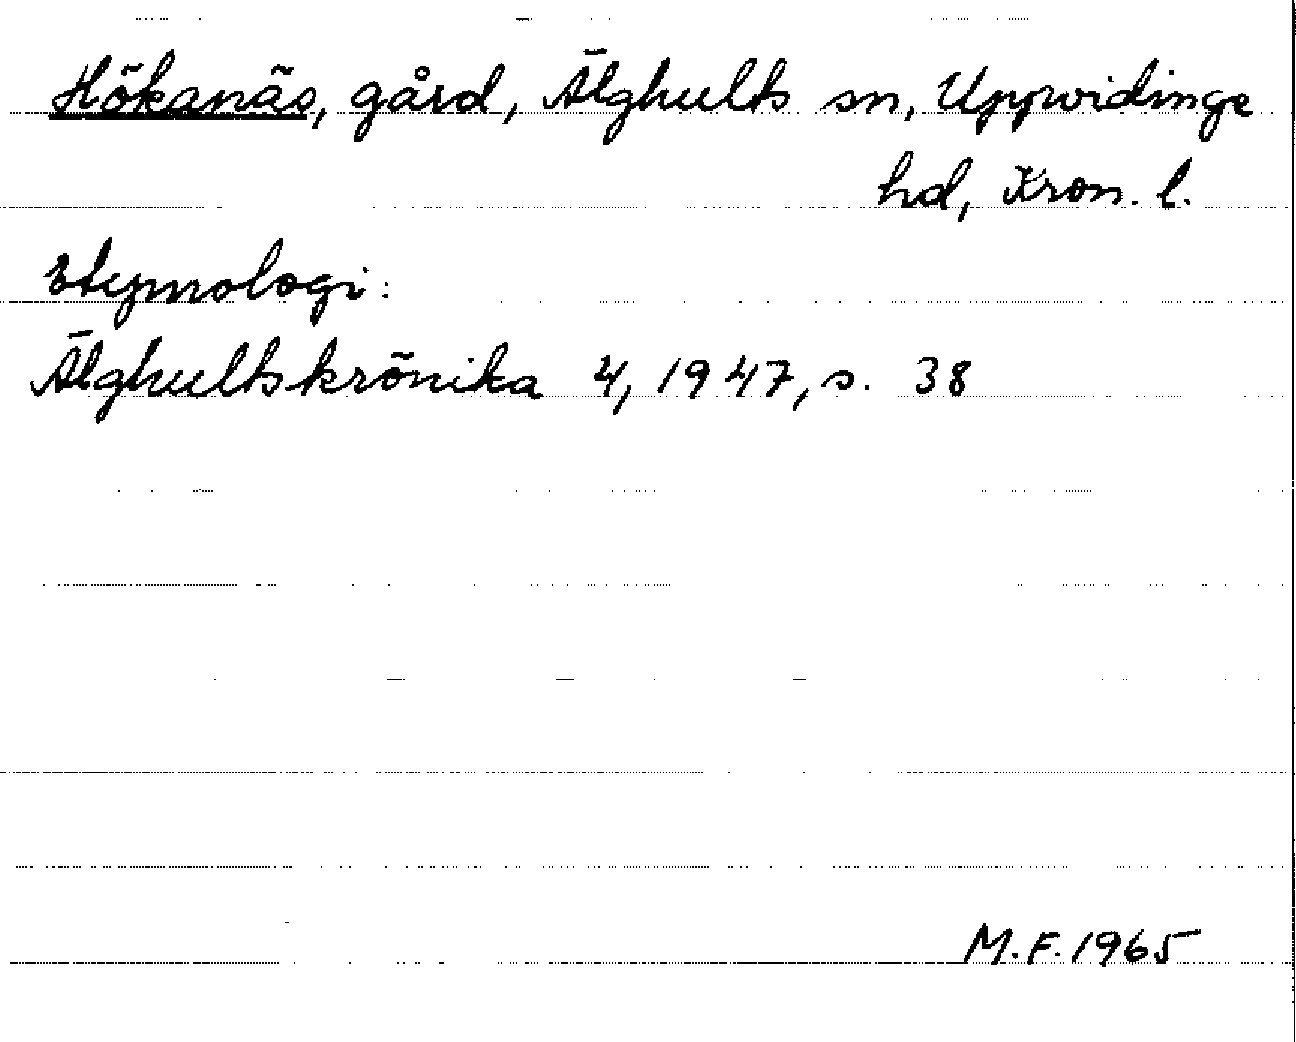 Hökanäs, gård, Älghults sn, Uppvidinge
hd, Kron. l.
Etymologi:
Älghultskrönika 4, 1947, s. 38
M.F. 1965